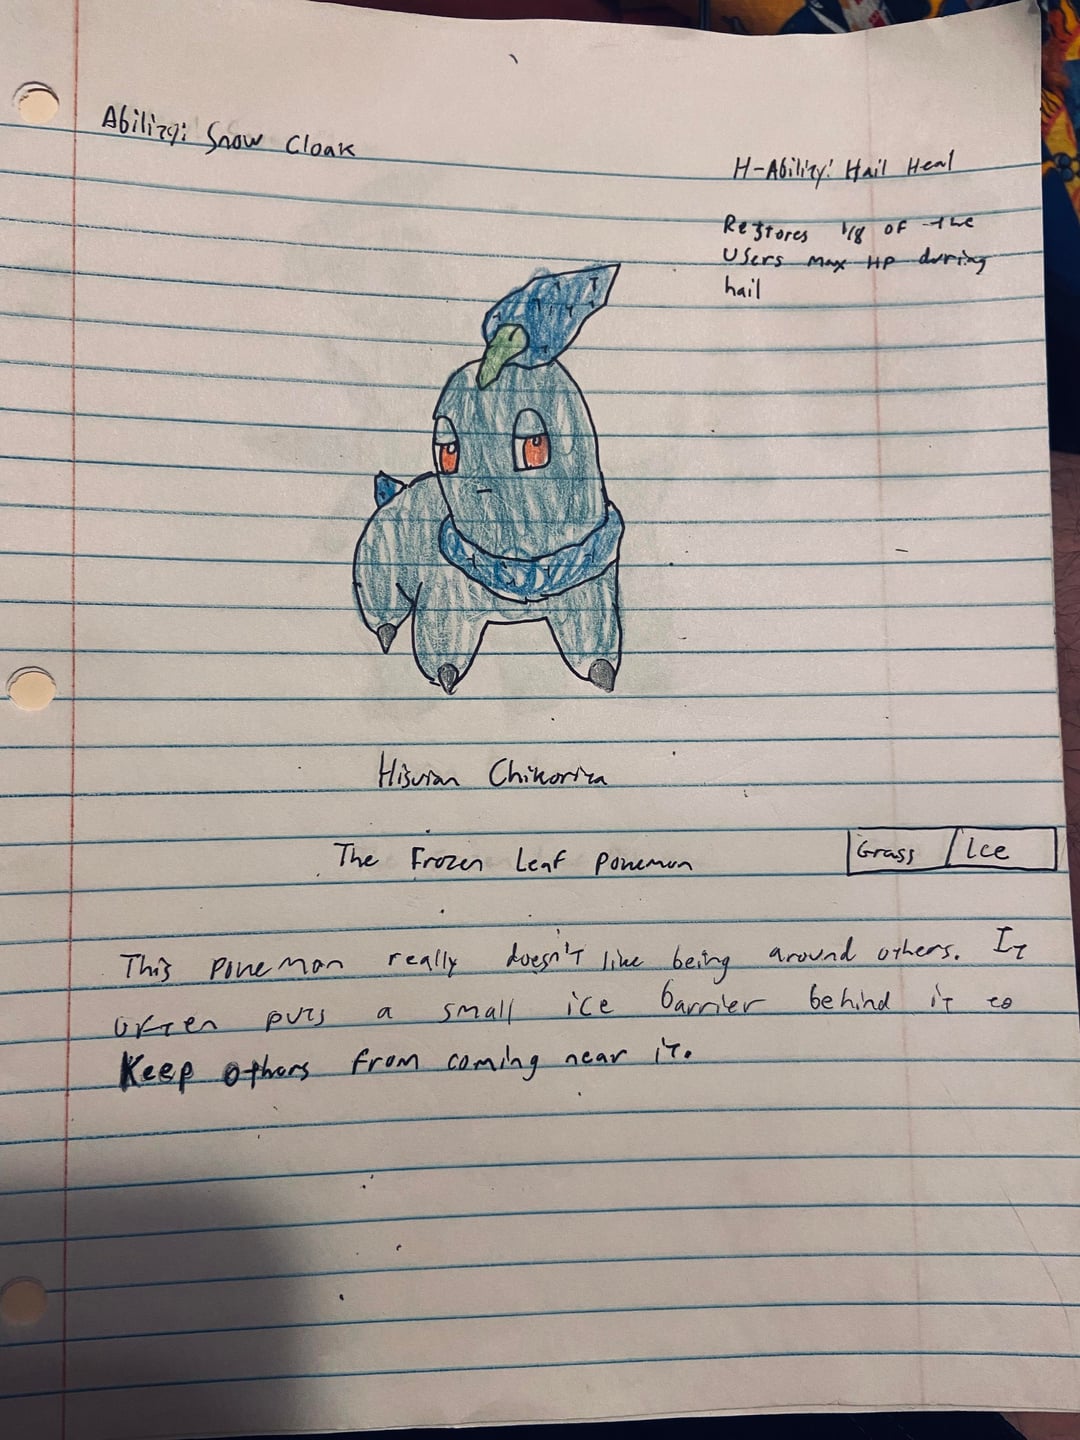 Ability: Snow Cloak
H-Ability: Hail Heal
Restores 1/8 of the
Users max HP during
hail
Hisuian Chikorita
The Frozen Leaf Pokemon
Grass / Ice
This Pokemon really doesn't like being around others. It
often puts a small ice barrier behind it to
Keep others from coming near it.